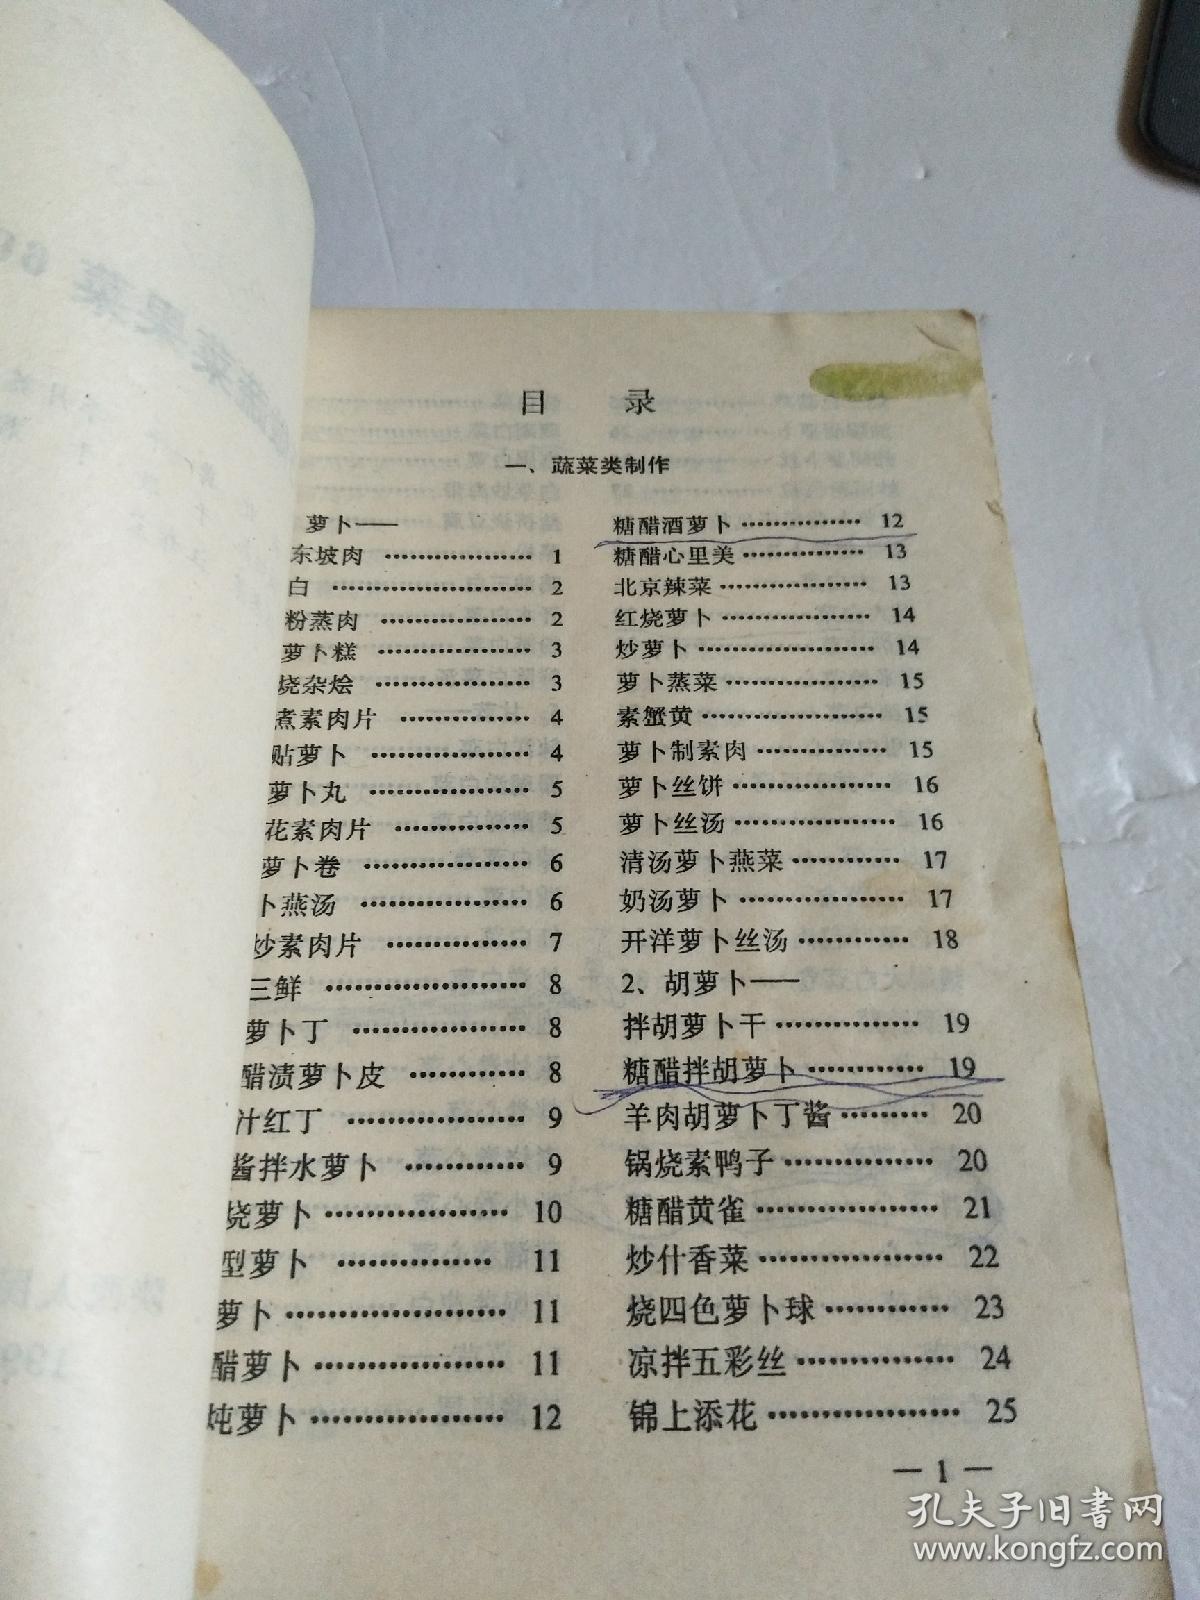 目 录
一、蔬菜类制作
萝卜——
东坡肉 ……………… 1
白 ……………… 2
粉蒸肉 ……………… 2
萝卜糕 ……………… 3
烧杂烩 ……………… 3
煮素肉片 ……………… 4
贴萝卜 ……………… 4
萝卜丸 ……………… 5
花素肉片 ……………… 5
萝卜卷 ……………… 6
卜燕汤 ……………… 6
炒素肉片 ……………… 7
三鲜 ……………… 8
萝卜丁 ……………… 8
醋渍萝卜皮 ………… 8
汁红丁 ……………… 9
酱拌水萝卜 ………… 9
烧萝卜 ……………… 10
型萝卜 ……………… 11
萝卜 ……………… 11
醋萝卜 ……………… 11
炖萝卜 ……………… 12
糖醋酒萝卜 ……………… 12
糖醋心里美 ……………… 13
北京辣菜 ……………… 13
红烧萝卜 ……………… 14
炒萝卜 ……………… 14
萝卜蒸菜 ……………… 15
素蟹黄 ……………… 15
萝卜制素肉 ……………… 15
萝卜丝饼 ……………… 16
萝卜丝汤 ……………… 16
清汤萝卜燕菜 ………… 17
奶汤萝卜 ……………… 17
开洋萝卜丝汤 ………… 18
2、胡萝卜——
拌胡萝卜干 ……………… 19
糖醋拌胡萝卜 ………… 19
羊肉胡萝卜丁酱 ……… 20
锅烧素鸭子 ……………… 20
糖醋黄雀 ……………… 21
炒什香菜 ……………… 22
烧四色萝卜球 ………… 23
凉拌五彩丝 ……………… 24
锦上添花 ……………… 25
— 1 —
孔夫子旧书网
www.kongfz.com